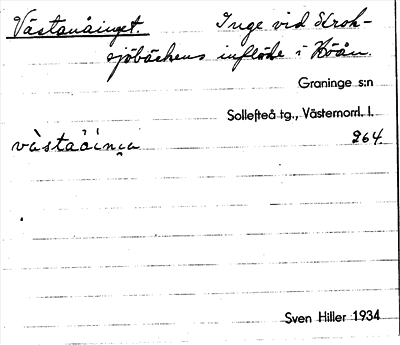 Västanåinget. Inge vid Stroh-
sjöbäckens inflöde i Höån.
Graninge s:n
Sollefteå tg., Västernorrl. l.
264.
Sven Hiller 1934